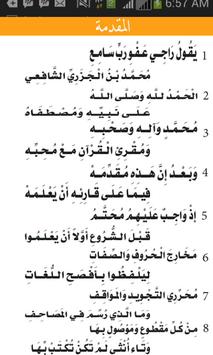 6:57 AM
المقدمة
يَقُولُ رَاجِي عَفْوِ رَبٍّ سَامِعِ 1
مُحَمَّدُ بْنُ الْجَزَرِيِّ الشَّافِعِي
الْحَمْدُ لِلَّهِ وَصَلَّى اللَّهُ 2
عَلَى نَبِيِّهِ وَمُصْطَفَاهُ
مُحَمَّدٍ وَآلِهِ وَصَحْبِهِ 3
وَمُقْرِئِ الْقُرْآنِ مَعْ مُحِبِّهِ
وَبَعْدُ إِنَّ هَذِهِ مُقَدِّمَهْ 4
فِيمَا عَلَى قَارِئِهِ أَنْ يَعْلَمَهْ
إِذْ وَاجِبٌ عَلَيْهِمُ مُحَتَّمُ 5
قَبْلَ الشُّرُوعِ أَوَّلاً أَنْ يَعْلَمُوا
مَخَارِجَ الْحُرُوفِ وَالصِّفَاتِ 6
لِيَلْفِظُوا بِأَفْصَحِ اللُّغَاتِ
مُحَرِّرِي التَّجْوِيدِ وَالْمَوَاقِفِ 7
وَمَا الَّذِي رُسِّمَ فِي الْمَصَاحِفِ
مِنْ كُلِّ مَقْطُوعٍ وَمَوْصُولٍ بِهَا 8
وَتَاءِ أُنْثَى لَمْ تَكُنْ تُكْتَبْ بِهَا